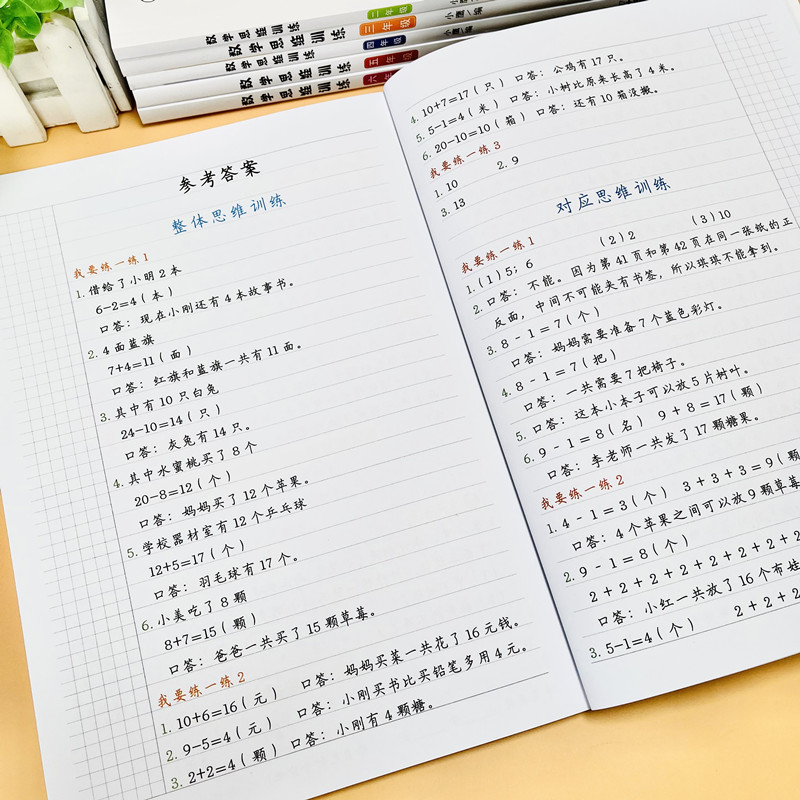 数学思维训练 二年级 小鹰/编
数学思维训练 三年级 小鹰/编
数学思维训练 四年级
数学思维训练 五年级
数学思维训练 六年级
参考答案
整体思维训练
我要练一练1
1. 借给了小明2本
6-2=4(本)
口答：现在小刚还有4本故事书。
2. 4面蓝旗
7+4=11(面)
口答：红旗和蓝旗一共有11面。
3. 其中有10只白兔
24-10=14(只)
口答：灰兔有14只。
4. 其中水蜜桃买了8个
20-8=12(个)
口答：妈妈买了12个苹果。
5. 学校器材室有12个乒乓球
12+5=17(个)
口答：羽毛球有17个。
6. 小美吃了8颗
8+7=15(颗)
口答：爸爸一共买了15颗草莓。
我要练一练2
1. 10+6=16(元) 口答：妈妈买菜一共花了16元钱。
2. 9-5=4(元) 口答：小刚买书比买铅笔多用4元。
3. 2+2=4(颗) 口答：小刚有4颗糖。
4. 10+7=17(只) 口答：公鸡有17只。
5. 5-1=4(米) 口答：小树比原来长高了4米。
6. 20-10=10(箱) 口答：还有10箱没搬。
我要练一练3
1. 10 2. 9
3. 13
对应思维训练
我要练一练1
1. (1)5；6 (2)2 (3)10
2. 口答：不能。因为第41页和第42页在同一张纸的正
反面，中间不可能夹有书签，所以琪琪不能拿到。
3. 8-1=7(个)
口答：妈妈需要准备7个蓝色彩灯。
4. 8-1=7(把)
口答：一共需要7把椅子。
5. 口答：这本小本子可以放5片树叶。
6. 9-1=8(名) 9+8=17(颗)
口答：李老师一共发了17颗糖果。
我要练一练2
1. 4-1=3(个) 3+3+3=9(颗
口答：4个苹果之间可以放9颗草莓
2. 9-1=8(个)
2+2+2+2+2+2+2+2
口答：小红一共放了16个布娃
3. 5-1=4(个) 2+2+2